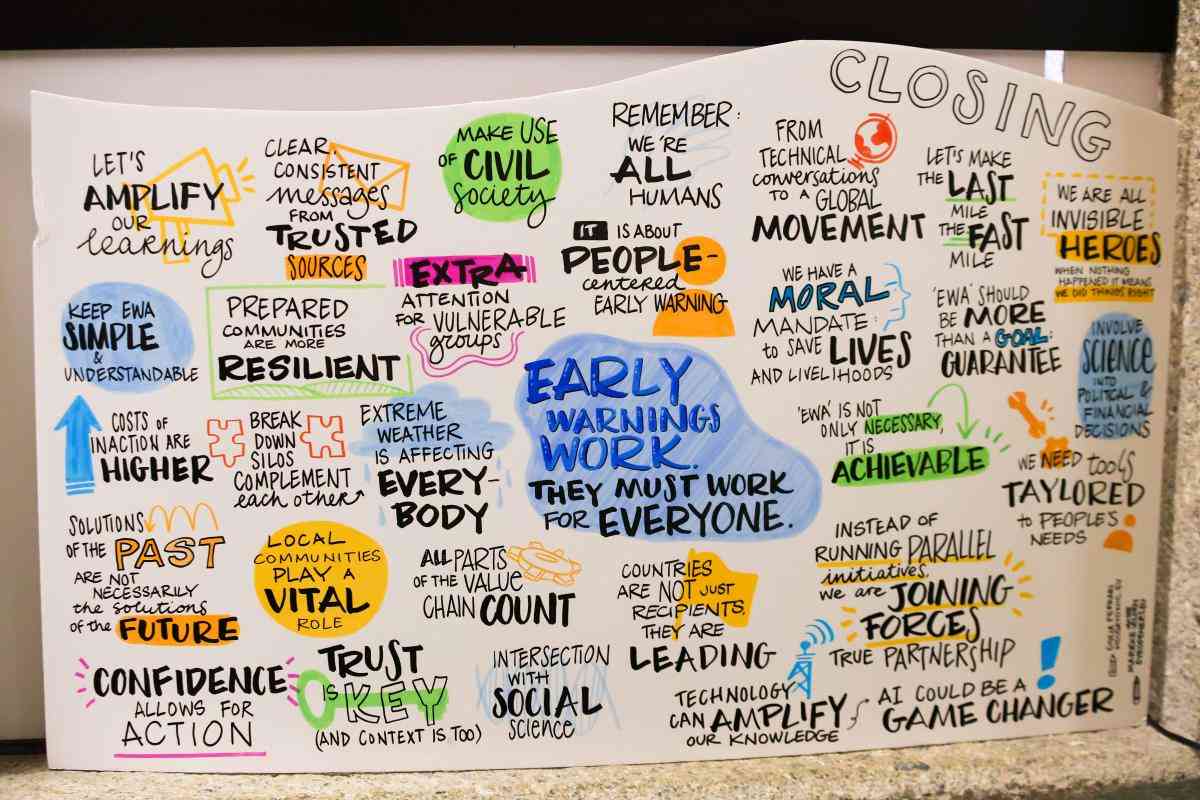 CLOSING
LET'S
AMPLIFY
OUR
learnings
CLEAR,
CONSISTENT
messages
FROM
TRUSTED
SOURCES
MAKE USE
OF CIVIL
Society
REMEMBER:
WE'RE
ALL
HUMANS
FROM
TECHNICAL
conversations
TO A GLOBAL
MOVEMENT
LET'S MAKE
THE LAST
MILE
THE FAST
MILE
WE ARE ALL
INVISIBLE
HEROES
WHEN NOTHING
HAPPENED IT MEANS
WE DID THINGS RIGHT
KEEP EWA
SIMPLE
&
UNDERSTANDABLE
PREPARED
COMMUNITIES
ARE MORE
RESILIENT
EXTRA
ATTENTION
FOR VULNERABLE
groups
IT IS ABOUT
PEOPLE-
centered
EARLY WARNING
WE HAVE A
MORAL
MANDATE:
to SAVE LIVES
AND LIVELIHOODS
'EWA' SHOULD
BE MORE
THAN A GOAL:
GUARANTEE
INVOLVE
SCIENCE
INTO
POLITICAL &
FINANCIAL
DECISIONS
COSTS OF
INACTION ARE
HIGHER
BREAK
DOWN
SILOS
COMPLEMENT
each other
EXTREME
WEATHER
IS AFFECTING
EVERY-
BODY
EARLY
WARNINGS
WORK.
THEY MUST WORK
FOR EVERYONE.
'EWA' IS NOT
ONLY NECESSARY,
IT IS
ACHIEVABLE
WE NEED tools
TAYLORED
to PEOPLE'S
NEEDS
SOLUTIONS
OF THE PAST
ARE NOT
NECESSARILY
the solutions
of the FUTURE
LOCAL
COMMUNITIES
PLAY A
VITAL
ROLE
ALL PARTS
OF THE VALUE
CHAIN COUNT
COUNTRIES
ARE NOT JUST
RECIPIENTS,
THEY ARE
LEADING
INSTEAD OF
RUNNING PARALLEL
initiatives,
we are JOINING
FORCES
TRUE PARTNERSHIP
CONFIDENCE
ALLOWS FOR
ACTION
TRUST
IS KEY
(AND CONTEXT IS TOO)
INTERSECTION
WITH
SOCIAL
science
TECHNOLOGY
CAN AMPLIFY
OUR KNOWLEDGE
AI COULD BE A
GAME CHANGER